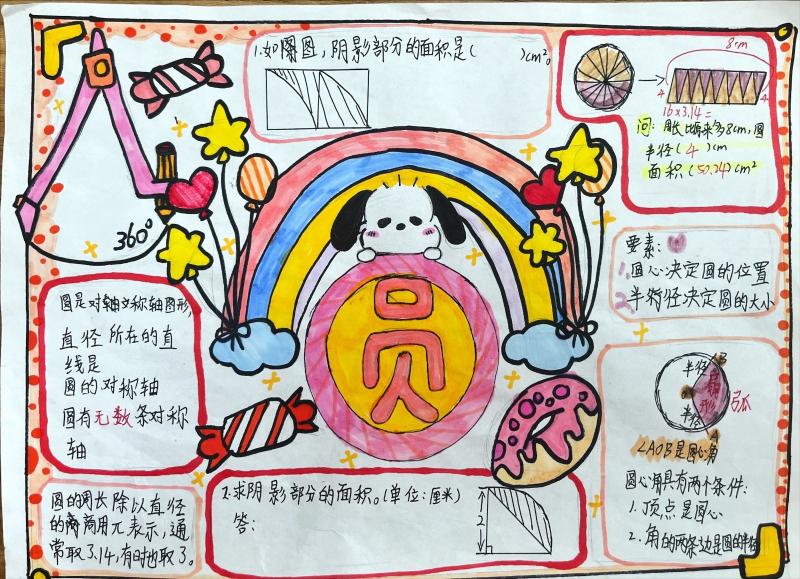 1.如图,阴影部分的面积是(      )cm²。
8cm
4
4
16×3.14=
问:周长比原来多8cm,圆
半径(4)cm
面积(50.24)cm²
360°
要素:
1.圆心决定圆的位置
2.半径决定圆的大小
圆是对轴对称轴图形,
直径所在的直
线是
圆的对称轴
圆有无数条对称
轴
圆
半径
半径
扇形
弧
B
A
∠AOB是圆心角
圆心角具有两个条件:
1.顶点是圆心
2.角的两条边是圆的半径
圆的周长除以直径
的商用π表示,通
常取3.14,有时也取3。
2.求阴影部分的面积。(单位:厘米)
答:
2